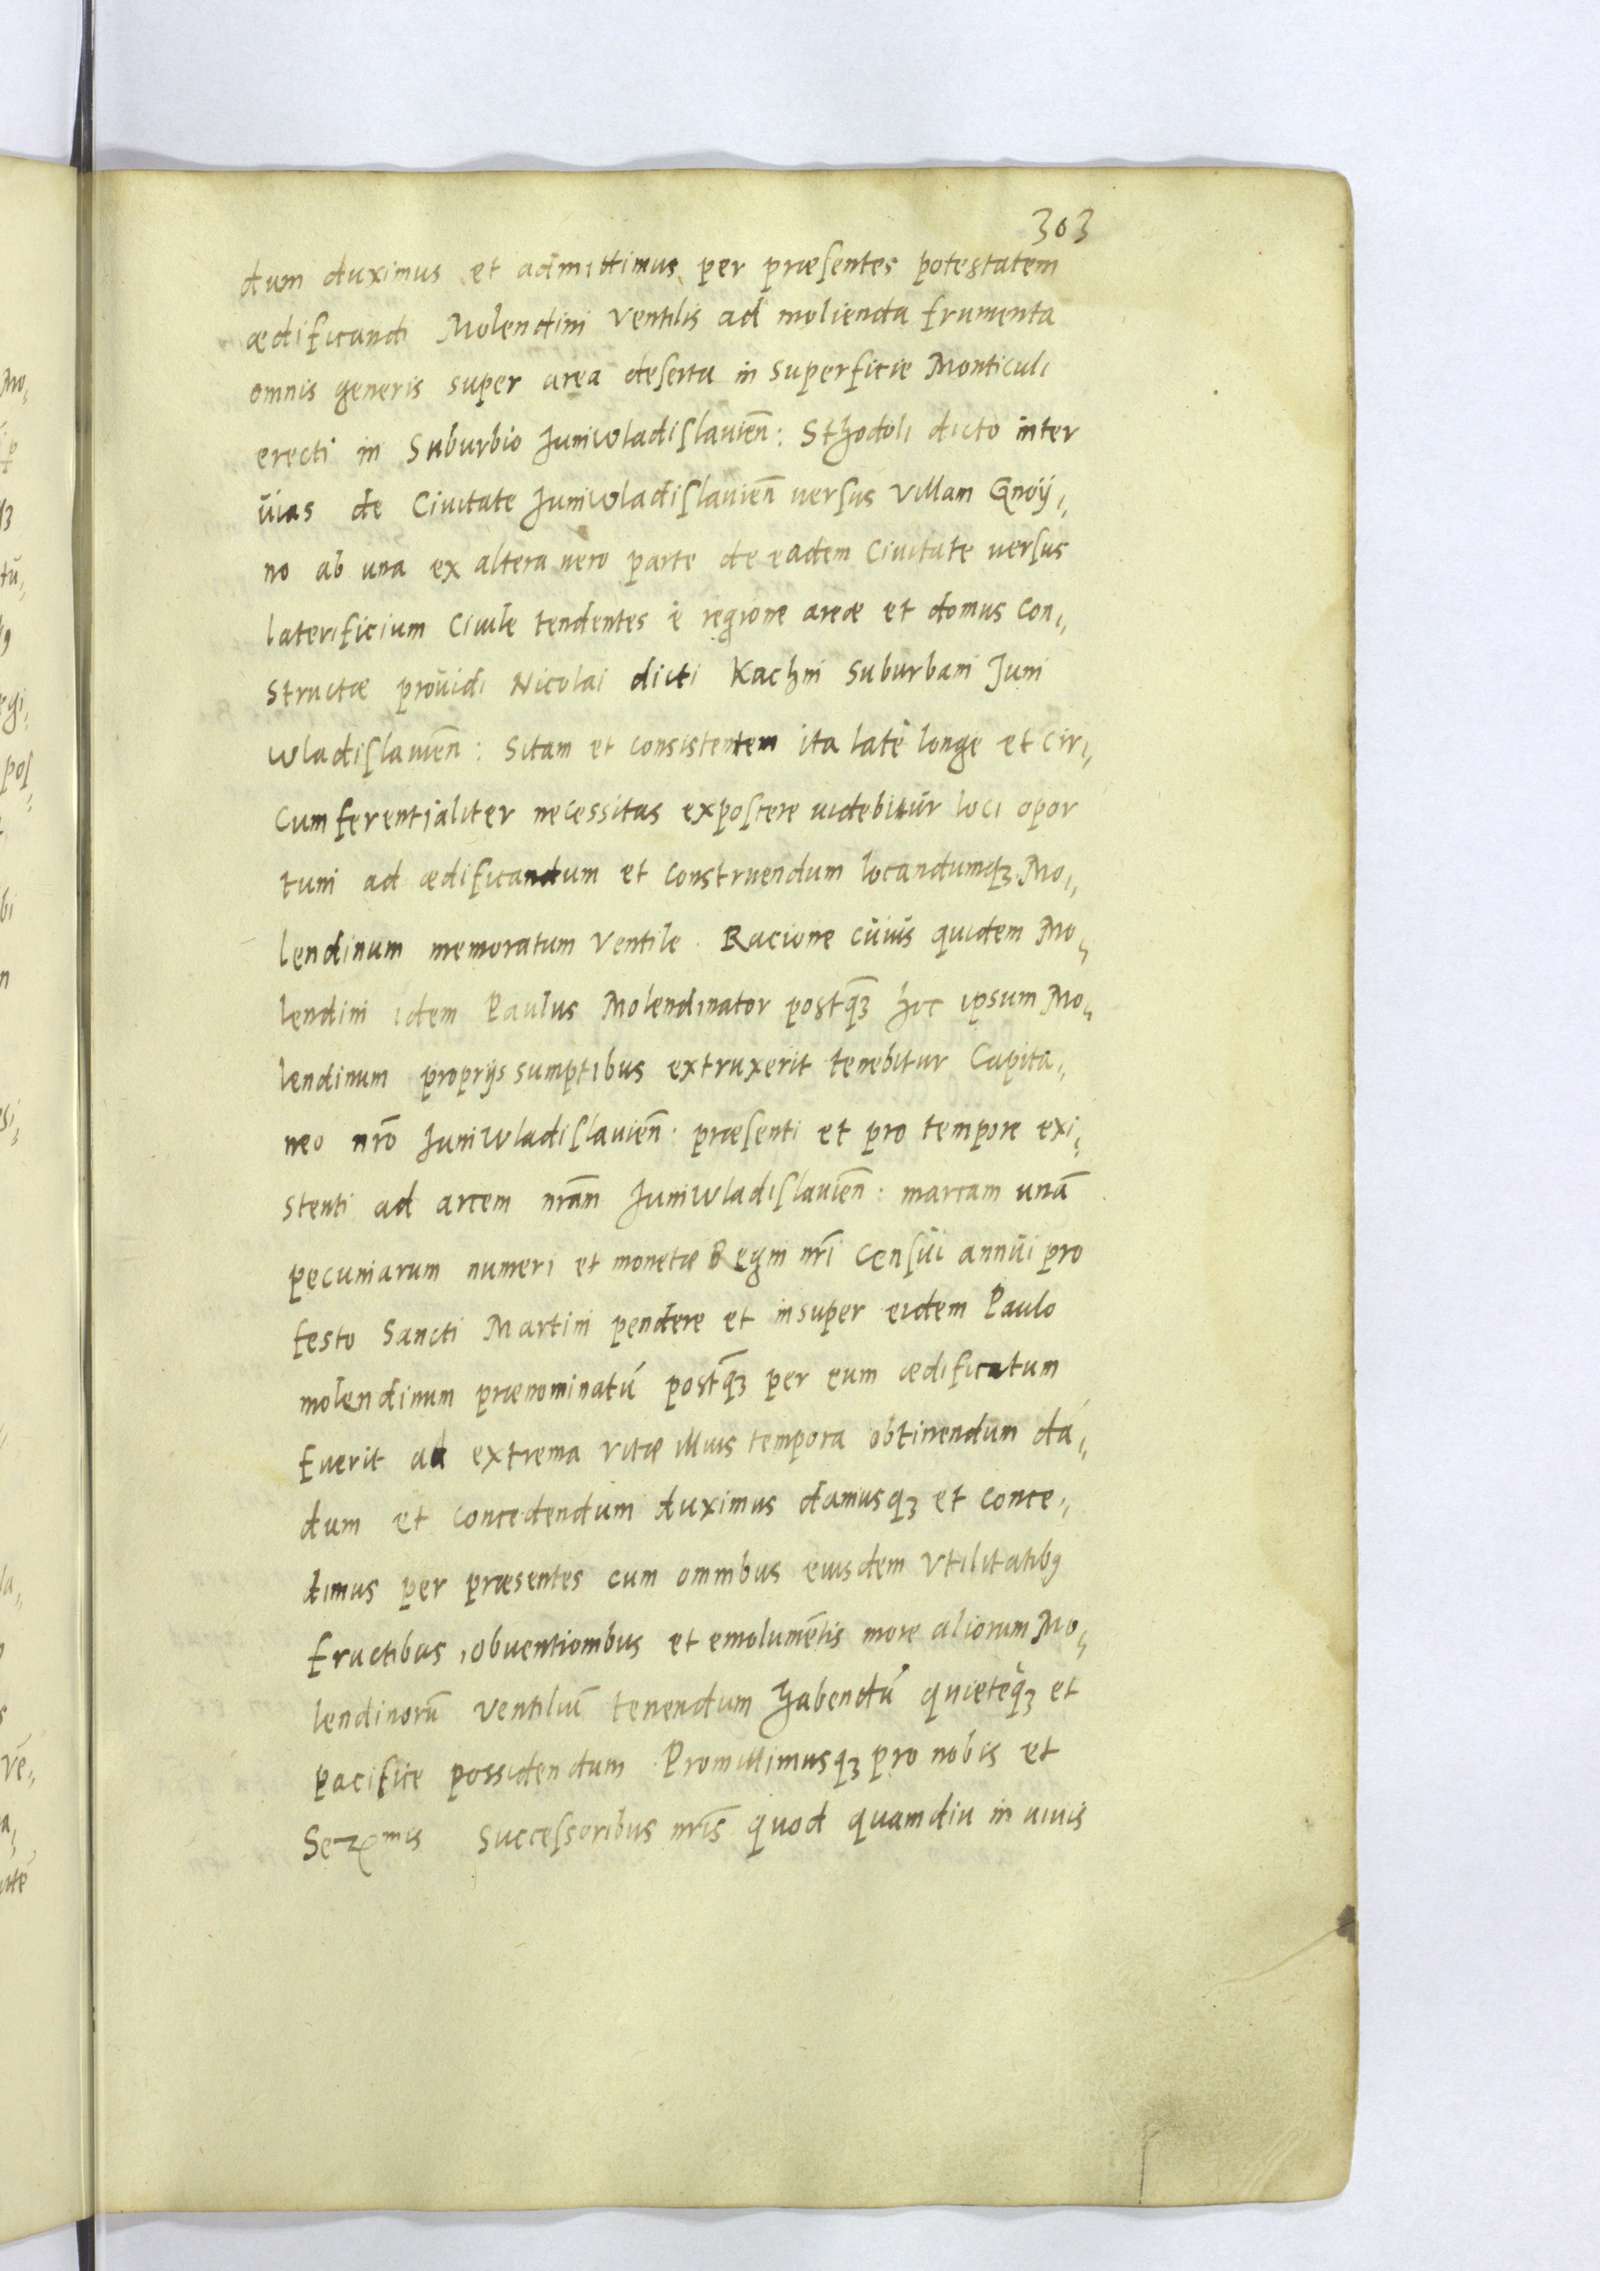 303
dum duximus et admittimus per præsentes potestatem
ædificandi Molendini Ventilis ad molienda frumenta
omnis generis super area deserta in superficie Monticuli
erecti in Suburbio Juniwladislauien̄: Sthodoli dicto inter
uias de Ciuitate Juniwladislauien̄ uersus Villam Gnoij,
no ab una ex altera uero parte de eadem Ciuitate uersus
laterificium Ciuile tendentes è regione areæ et domus Con,
structæ prouidi Nicolai dicti Kachni Suburbani Juni
wladislauien̄: Sitam et consistentem ita latè longe et Cir,
cumferentialiter necessitas exposcere uidebitur loci opor
tuni ad ædificandum et construendum locandumqꝫ Mo,
lendinum memoratum Ventile. Racione cuius quidem Mo,
lendini idem Paulus Molendinator postq̄ꝫ hic ipsum Mo,
lendinum proprijs sumptibus extruxerit tenebitur Capita,
neo nr̄o Juniwladislauien̄: præsenti et pro tempore exi,
stenti ad arcem nr̄am Juniwladislauien̄: marcam unā
pecuniarum numeri et monetæ Regni nr̄i Censui annui pro
festo Sancti Martini pendere et insuper eidem Paulo
molendinum prænominatū postq̄ꝫ per eum ædificatum
fuerit ad extrema vitæ illius tempora obtinendum dā,
dum et concedendum duximus damusqꝫ et conce,
dimus per præsentes cum omnibus eiusdem Vtilitatibꝰ
fructibus, obuentionibus et emolumētis more aliorum Mo,
lendinorū Ventiliū tenendum habendū quietèqꝫ et
pacifice possidendum. Promittimusqꝫ pro nobis et
Ser^mis Successoribus nr̄is quod quamdiu in uiuis